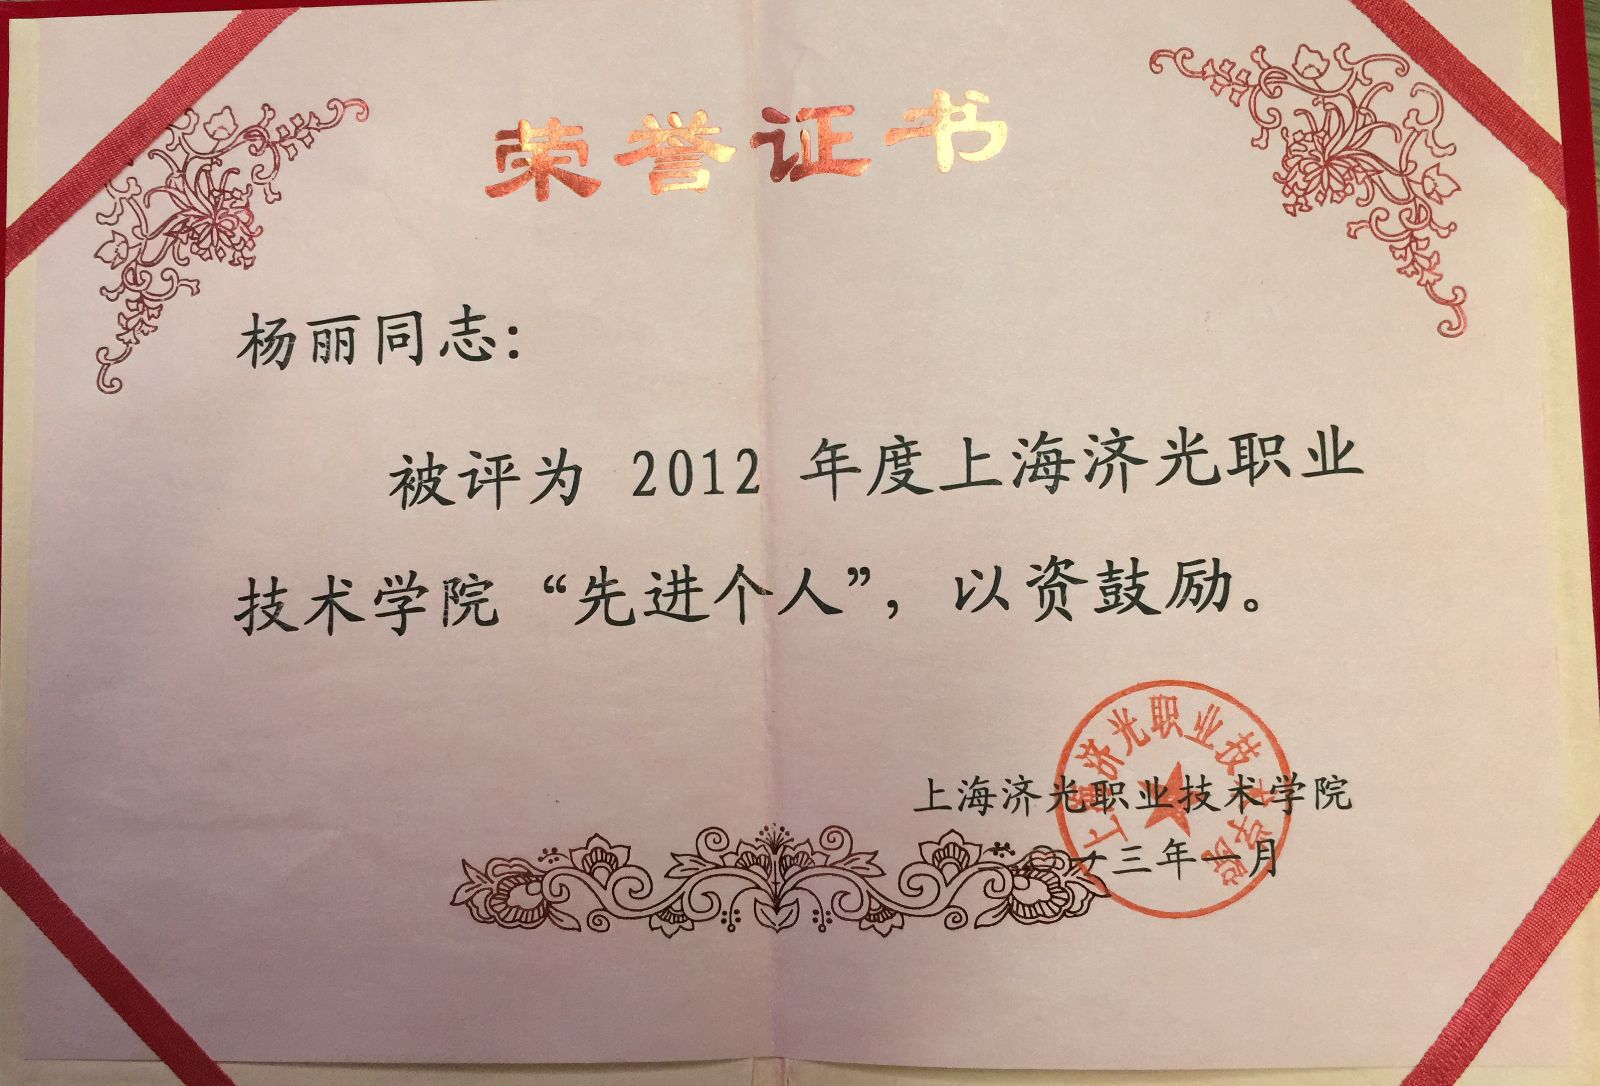 荣誉证书
杨丽同志：
被评为 2012 年度上海济光职业
技术学院“先进个人”，以资鼓励。
上海济光职业技术学院
上海济光职业技术学院
二〇一三年一月